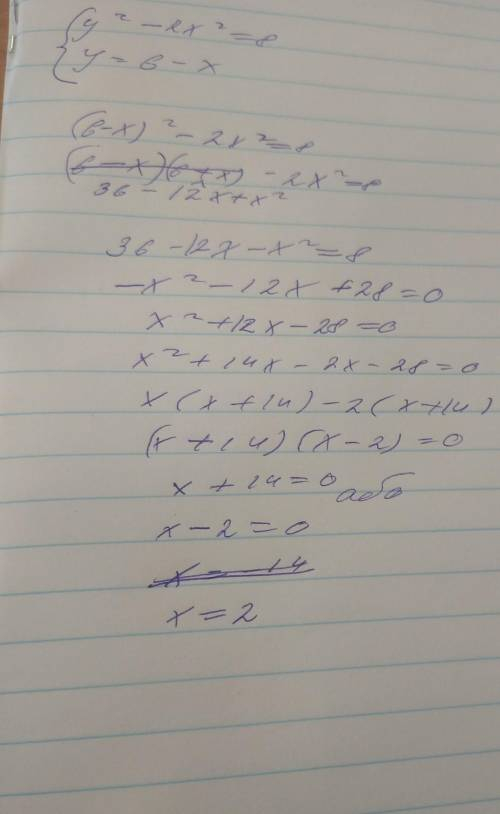 {y² - 2x² = 8
{y = 6 - x
(6-x)² - 2x² = 8
(6-x)(6+x) - 2x² = 8
36 - 12x + x²
36 - 12x - x² = 8
-x² - 12x + 28 = 0
x² + 12x - 28 = 0
x² + 14x - 2x - 28 = 0
x(x+14) - 2(x+14)
(x+14)(x-2) = 0
x + 14 = 0 або
x - 2 = 0
x = -14
x = 2